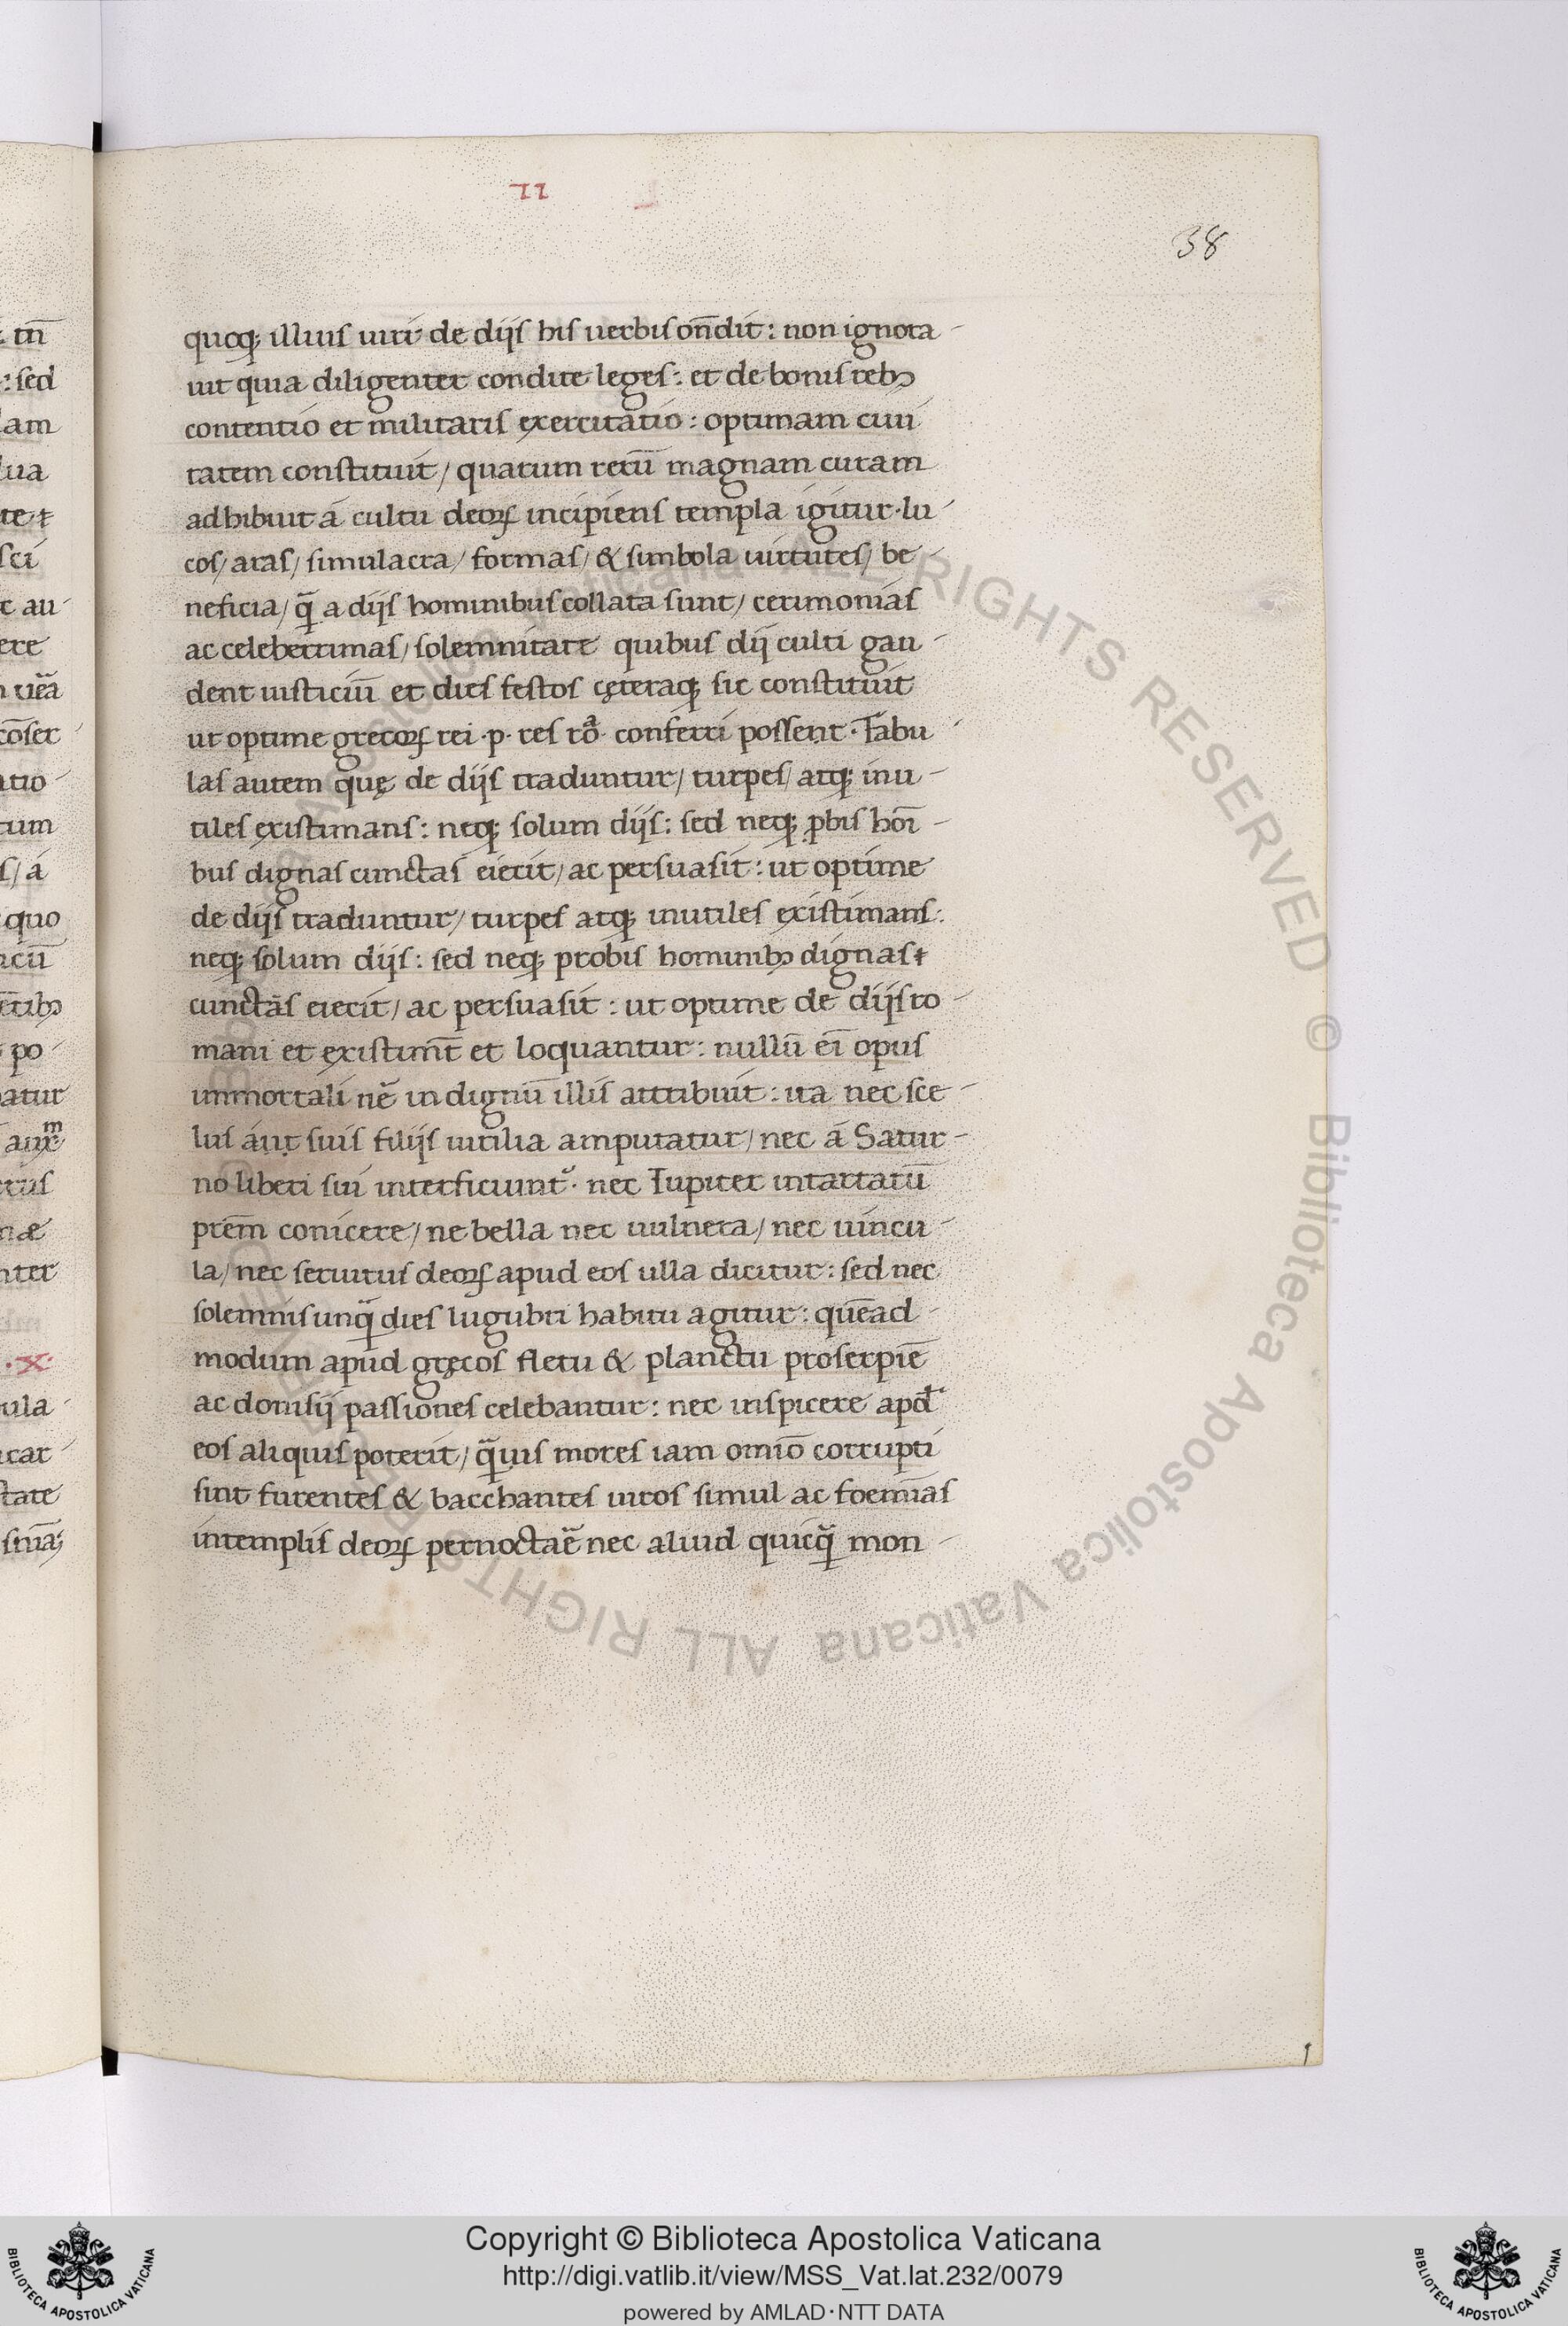 II
38
quoq; illius uiri de dijs his uerbis on̄dit: non ignora-
uit quia diligenter condite leges: et de bonis rebꝫ
contentio et militaris exercitatio: optimam ciui
tatem constituit/ quarum rerū magnam curam
adhibuit á cultu deoꝝ incipiens templa igitur·lu-
cos/ aras/ simulacra/ formas/ & simbola uirtutes/ be-
neficia/ q̄ a dijs hominibus collata sunt/ cerimonias
ac celeberrimas/ solemnitate quibus dij culti gau-
dent iusticiū et dies festos cęteraq; sic constituit
ut optime grecoꝝ rei ·p· res roᷓ· conferri possent· Fabu-
las autem quę de dijs traduntur/ turpes/ atq; inu-
tiles existimans: neq; solum dijs: sed neq; ꝓbis hoī-
bus dignas cunctas eiecit/ ac persuasit: ut optime
de dijs traduntur/ turpes atq; inutiles existimans:
neq; solum dijs: sed neq; probis hominibꝫ dignas
cunctas eiecit/ ac persuasit: ut optime de dijs ro-
mani et existimēt et loquantur: nullū ei opus
immortali nē indignū illis attribuit: ita nec sce-
lus aut suis filijs uirilia amputatur/ nec á Satur-
no liberi sui interficiunt᷑· nec Iupiter intartarū
prēm conicere/ ne bella nec uulnera/ nec uincu-
la/ nec seruitus deoꝝ apud eos ulla dicitur: sed nec
solemnis unq̄ dies lugubri habitu agitur: quēad-
modum apud gręcos fletu & planctu proserpiē
ac donisij passiones celebantur: nec inspicere apd̄
eos aliquis poterit/ q̄uis mores iam omīo corrupti
sint furentes & bacchantes uiros simul ac foemias
intemplis deoꝝ pernoctaē nec aliud quicq̄ mon-
Copyright © Biblioteca Apostolica Vaticana
http://digi.vatlib.it/view/MSS_Vat.lat.232/0079
powered by AMLAD·NTT DATA
BIBLIOTECA APOSTOLICA VATICANA
BIBLIOTECA APOSTOLICA VATICANA
ALL RIGHTS RESERVED © Biblioteca Apostolica Vaticana